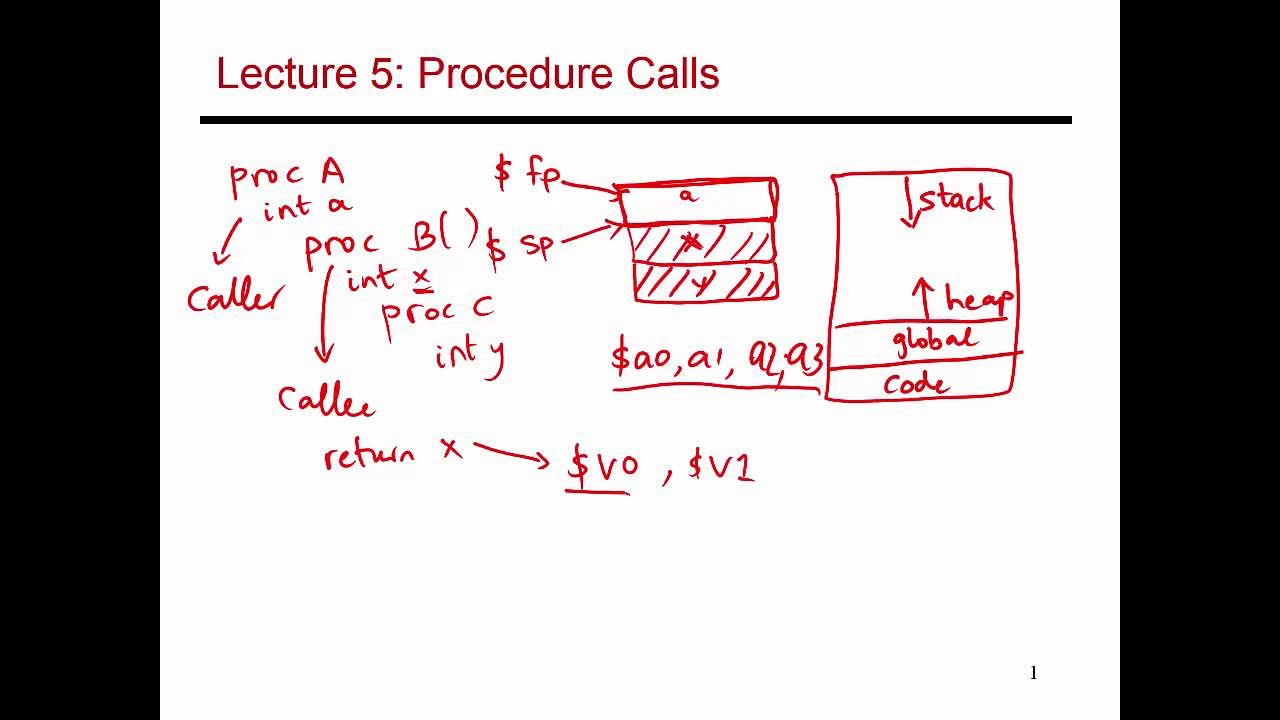 Lecture 5: Procedure Calls
proc A
int a
Caller
proc B()
int x
proc C
int y
Callee
return x
$ fp
$ sp
a
x
y
$a0, a1, a2, a3
$v0, $v1
stack
heap
global
Code
1